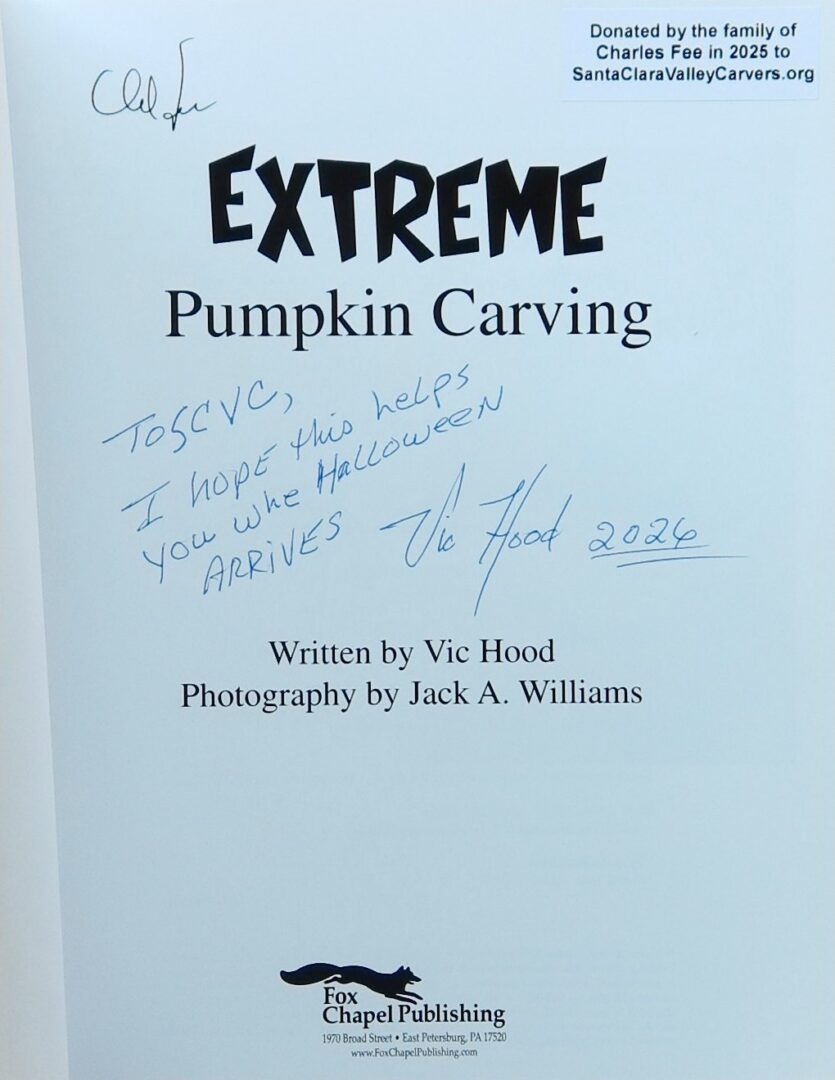 Donated by the family of
Charles Fee in 2025 to
SantaClaraValleyCarvers.org
EXTREME
Pumpkin Carving
To SCVC,
I HOPE this helps
you whe Halloween
ARRIVES Vic Hood 2026
Written by Vic Hood
Photography by Jack A. Williams
Fox
Chapel Publishing
1970 Broad Street • East Petersburg, PA 17520
www.FoxChapelPublishing.com